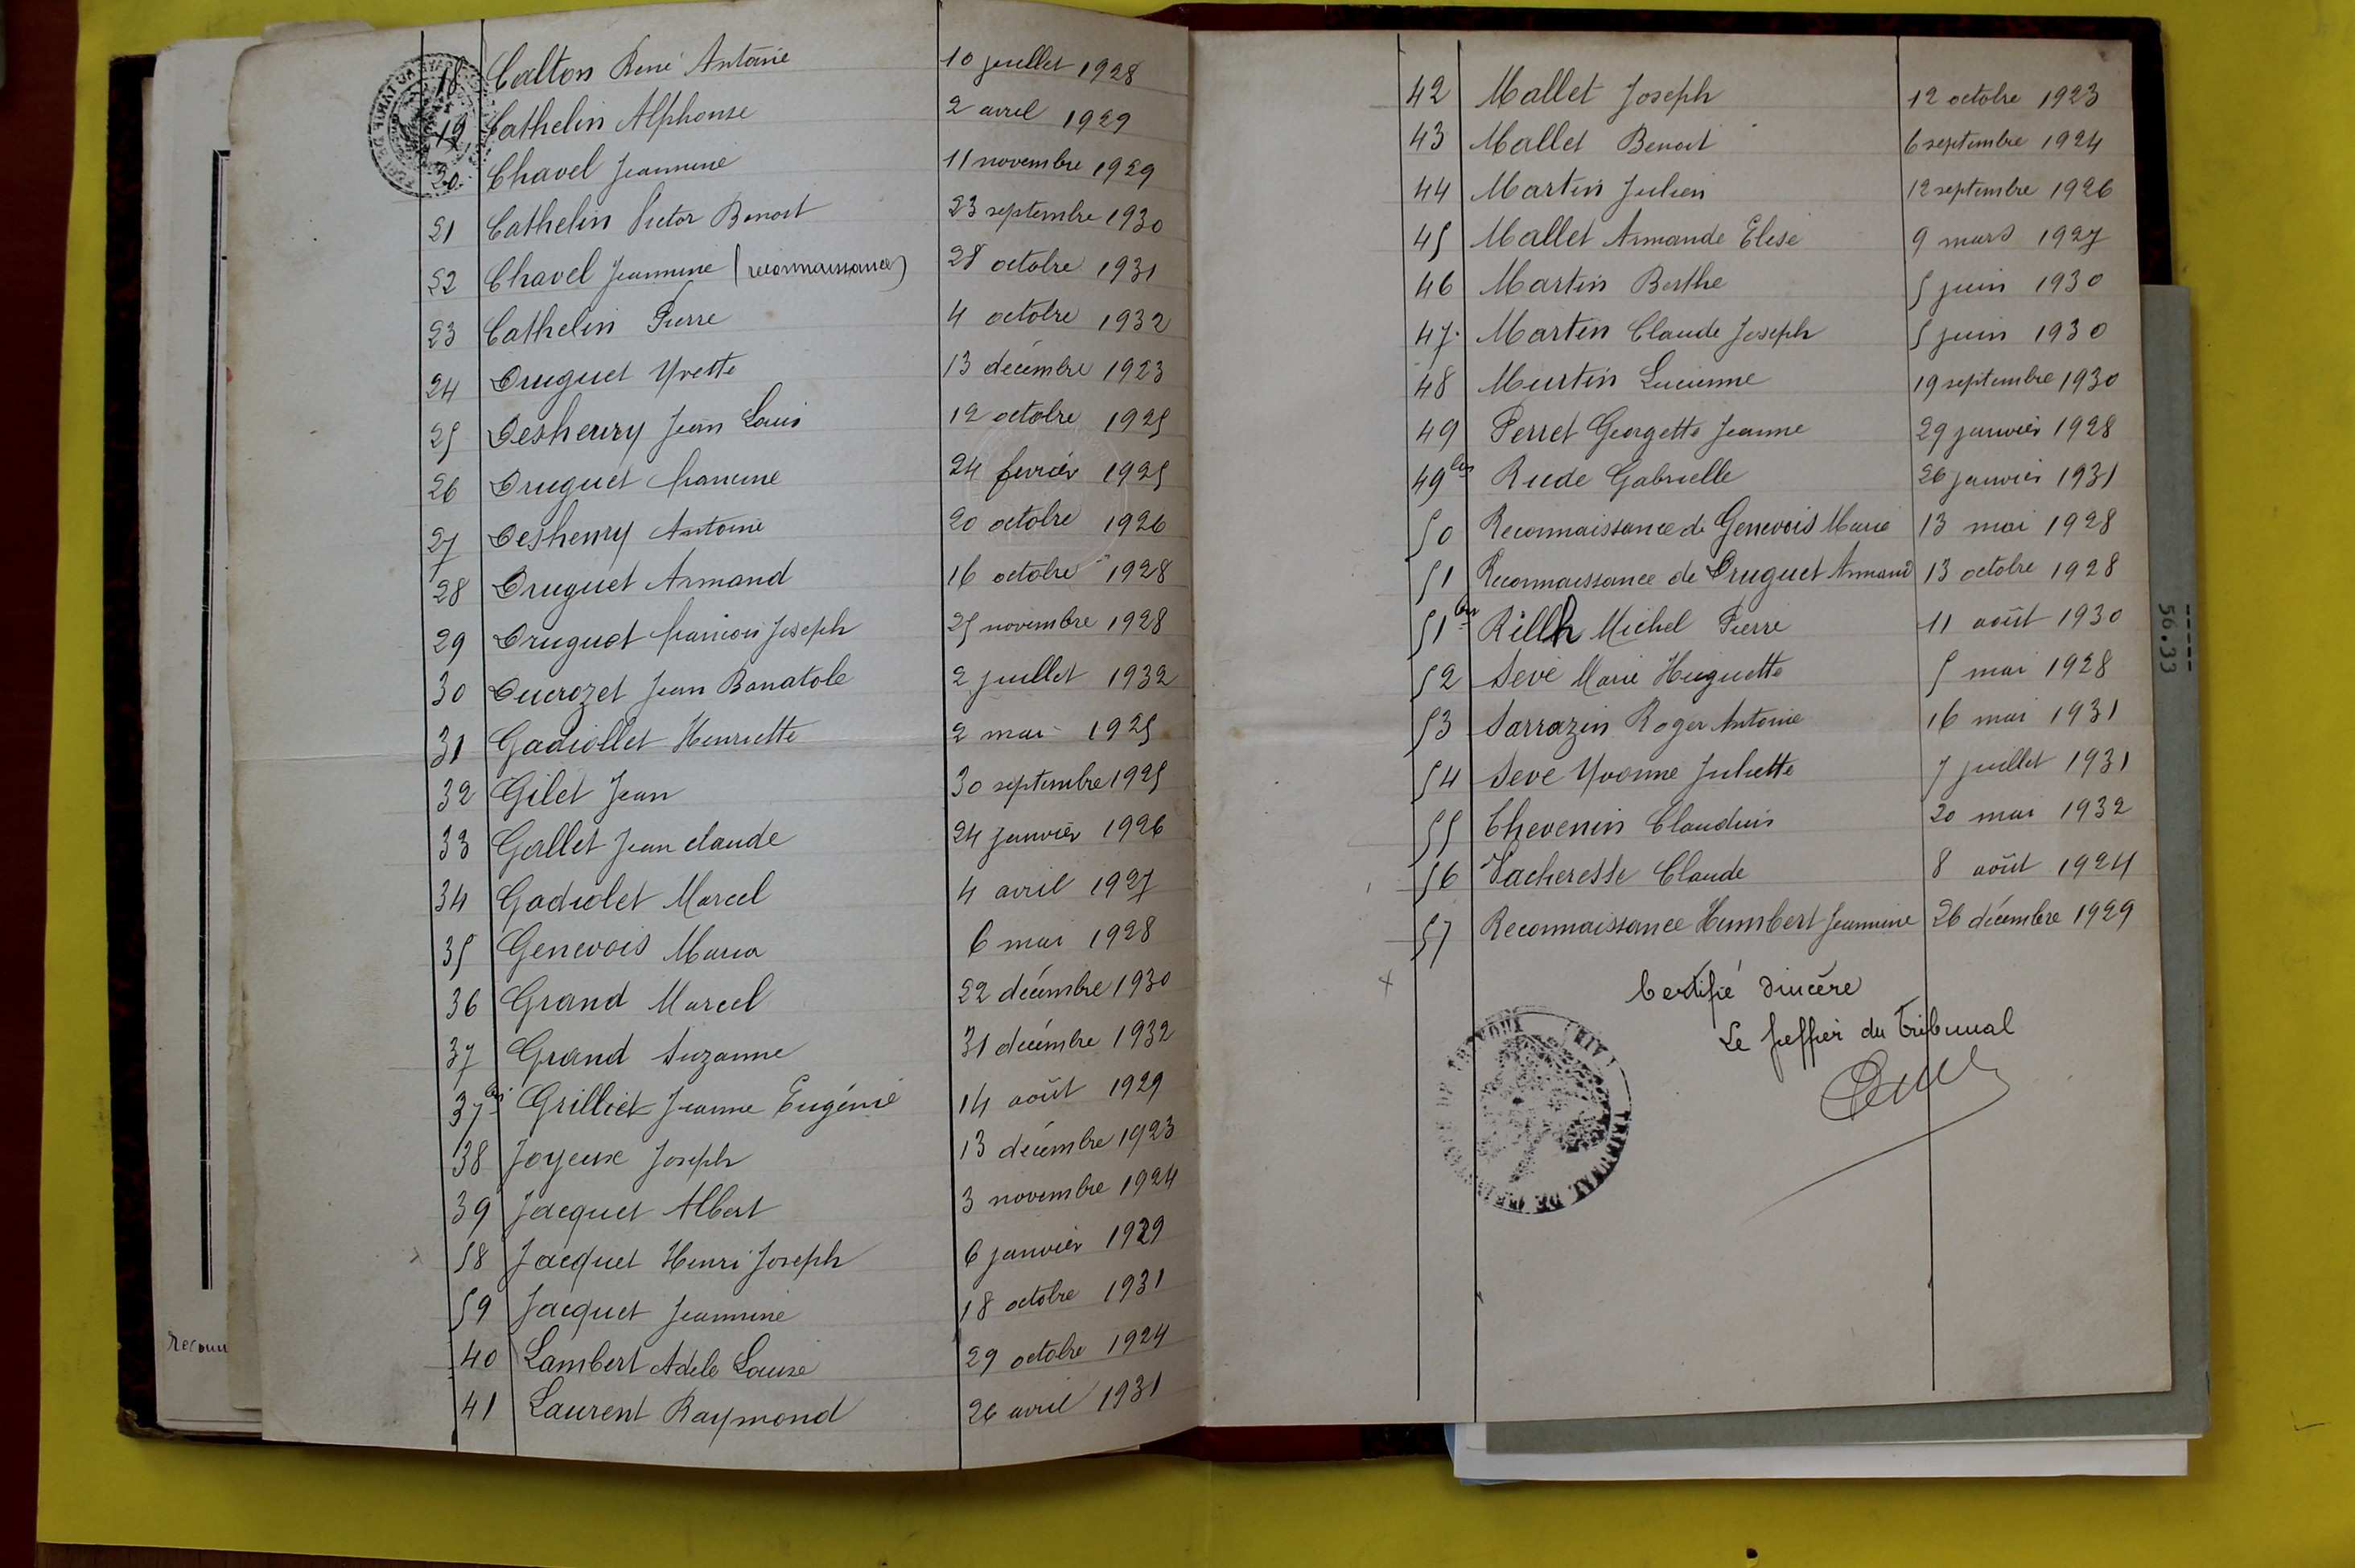 18 Calton René Antoine 10 juillet 1928
19 Cathelin Alphonse 2 avril 1929
20 Chavel Jeannine 11 novembre 1929
21 Cathelin Victor Benoit 23 septembre 1930
22 Chavel Jeannine (reconnaissance) 28 octobre 1931
23 Cathelin Pierre 4 octobre 1932
24 Druguet Yvette 13 décembre 1923
25 Deshenry Jean Louis 12 octobre 1925
26 Druguet Francine 24 fevrier 1925
27 Deshenry Antoine 20 octobre 1926
28 Druguet Armand 16 octobre 1928
29 Druguet Francois Joseph 25 novembre 1928
30 Ducrozet Jean Banatole 2 juillet 1932
31 Gadiollet Henriette 2 mai 1925
32 Gilet Jean 30 septembre 1925
33 Gallet Jean claude 24 janvier 1926
34 Gadiolet Marcel 4 avril 1927
35 Genevois Maria 6 mai 1928
36 Grand Marcel 22 décembre 1930
37 Grand Suzanne 31 décembre 1932
37 bis Grilliet Jeanne Eugénie 14 août 1929
38 Joyeux Joseph 13 décembre 1923
39 Jacquet Albert 3 novembre 1924
58 Jacquet Henri Joseph 6 janvier 1929
59 Jacquet Jeannine 18 octobre 1931
40 Lambert Adele Louise 29 octobre 1924
41 Laurent Raymond 26 avril 1931
42 Mallet Joseph 12 octobre 1923
43 Mallet Benoit 6 septembre 1924
44 Martin Julien 12 septembre 1926
45 Mallet Armande Elise 9 mars 1927
46 Martin Berthe 5 juin 1930
47. Martin Claude Joseph 5 juin 1930
48 Murtin Lucienne 19 septembre 1930
49 Perret Georgette Jeanne 29 janvier 1928
49 bis Rude Gabrielle 26 janvier 1931
50 Reconnaissance de Genevois Marie 13 mai 1928
51 Reconnaissance de Druguet Armand 13 octobre 1928
51 bis Rillh Michel Pierre 11 août 1930
52 Seve Marie Huguette 5 mai 1928
53 Sarrazin Roger Antoine 16 mai 1931
54 Seve Yvonne Juliette 7 juillet 1931
55 Thevenin Claudius 20 mai 1932
56 Vacheresse Claude 8 août 1924
57 Reconnaissance Humbert Jeannine 26 décembre 1929
Certifié sincère
Le Greffier du Tribunal
TRIBUNAL DE
56.33